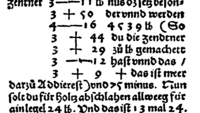 zentner 3 — 11 lb
3 + 50 der vnnd werden
4 — 16 4 5 3 9 lb (So
3 + 44 du die zendtner
3 + 29 zů lb gemachett
3 — 12 hast vnnd das /
3 + 9 + das ist meer
darzů Addierest) vnd 75 minus. Nun
solt du für holtz abschlahen allweeg für
ain legel 24 lb. Vnd das ist 13 mal 24.